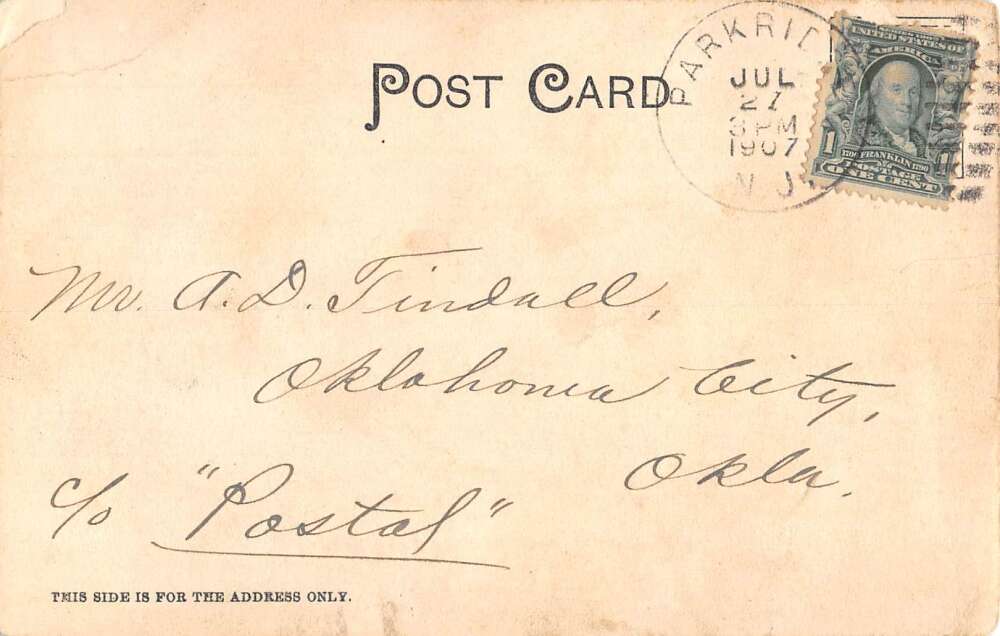 POST CARD
PARKRID
JUL
27
3 PM
1907
N J
UNITED STATES OF
AMERICA
1 1
1706 FRANKLIN 1790
POSTAGE
ONE CENT
Mr. A. D. Tindall,
Oklahoma City,
Okla.
c/o "Postal"
THIS SIDE IS FOR THE ADDRESS ONLY.